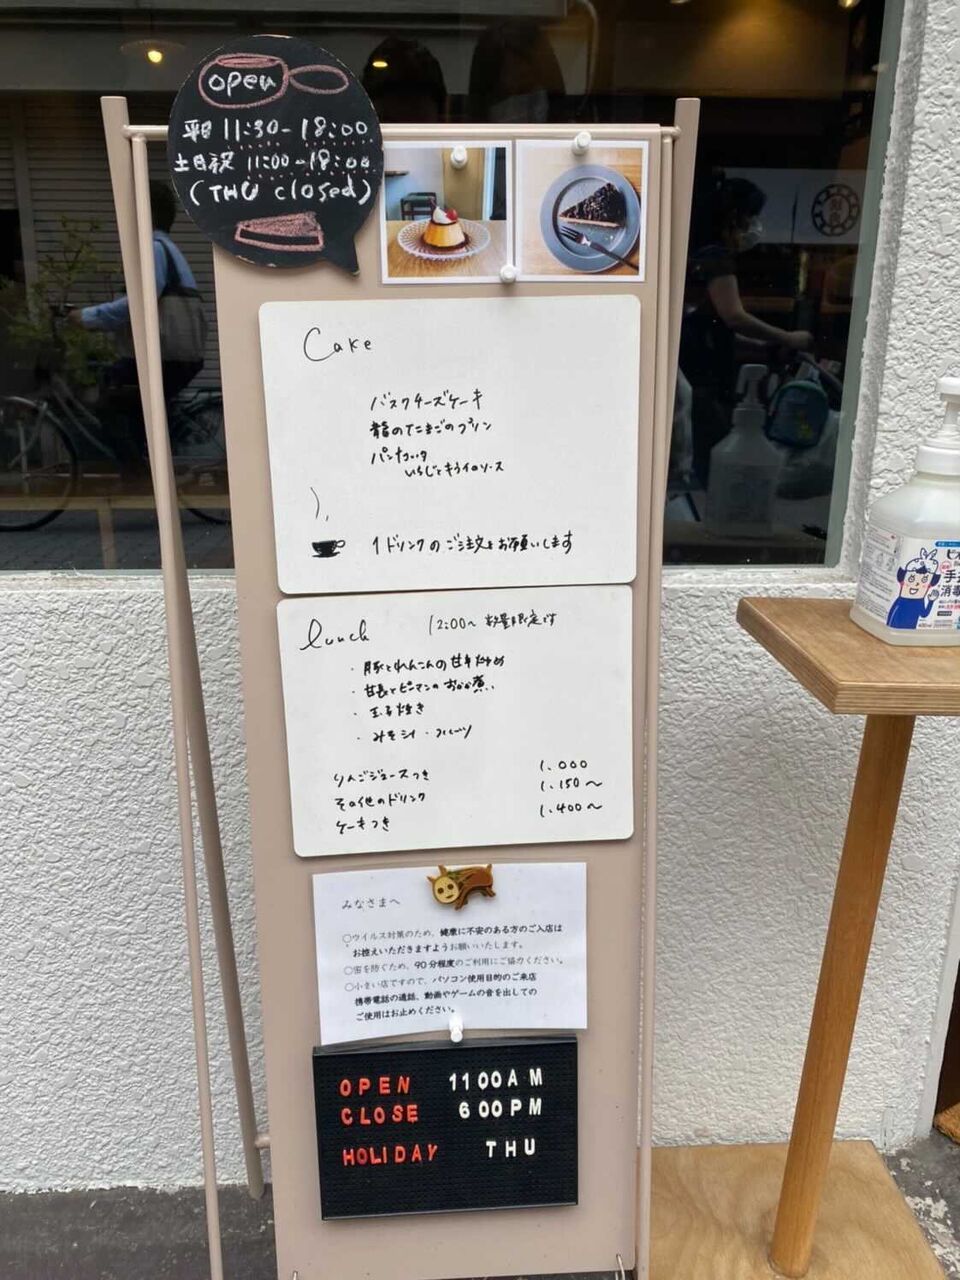 open
平日 11:30-18:00
土日祝 11:00-18:00
(THU closed)
Cake
バスクチーズケーキ
龍のたまごのプリン
パンナコッタ
いちじくとキウイのソース
1ドリンクのご注文をお願いします
lunch 12:00〜 数量限定です
・豚とれんこんの甘辛炒め
・甘長とピーマンのおかか煮
・玉子焼き
・みそ汁・フルーツ
りんごジュースつき 1.000
その他のドリンク 1.150〜
ケーキつき 1.400〜
みなさまへ
○ウイルス対策のため、健康に不安のある方のご入店は
お控えいただきますようお願いいたします。
○密を防ぐため、90分程度のご利用にご協力ください。
○小さい店ですので、パソコン使用目的のご来店
携帯電話の通話、動画やゲームの音を出しての
ご使用はお止めください。
OPEN 11 00 AM
CLOSE 6 00 PM
HOLIDAY THU
手
消毒